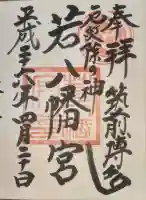 奉拝 筑前博多
厄災除の神
若八幡宮
平成二十八年四月三日